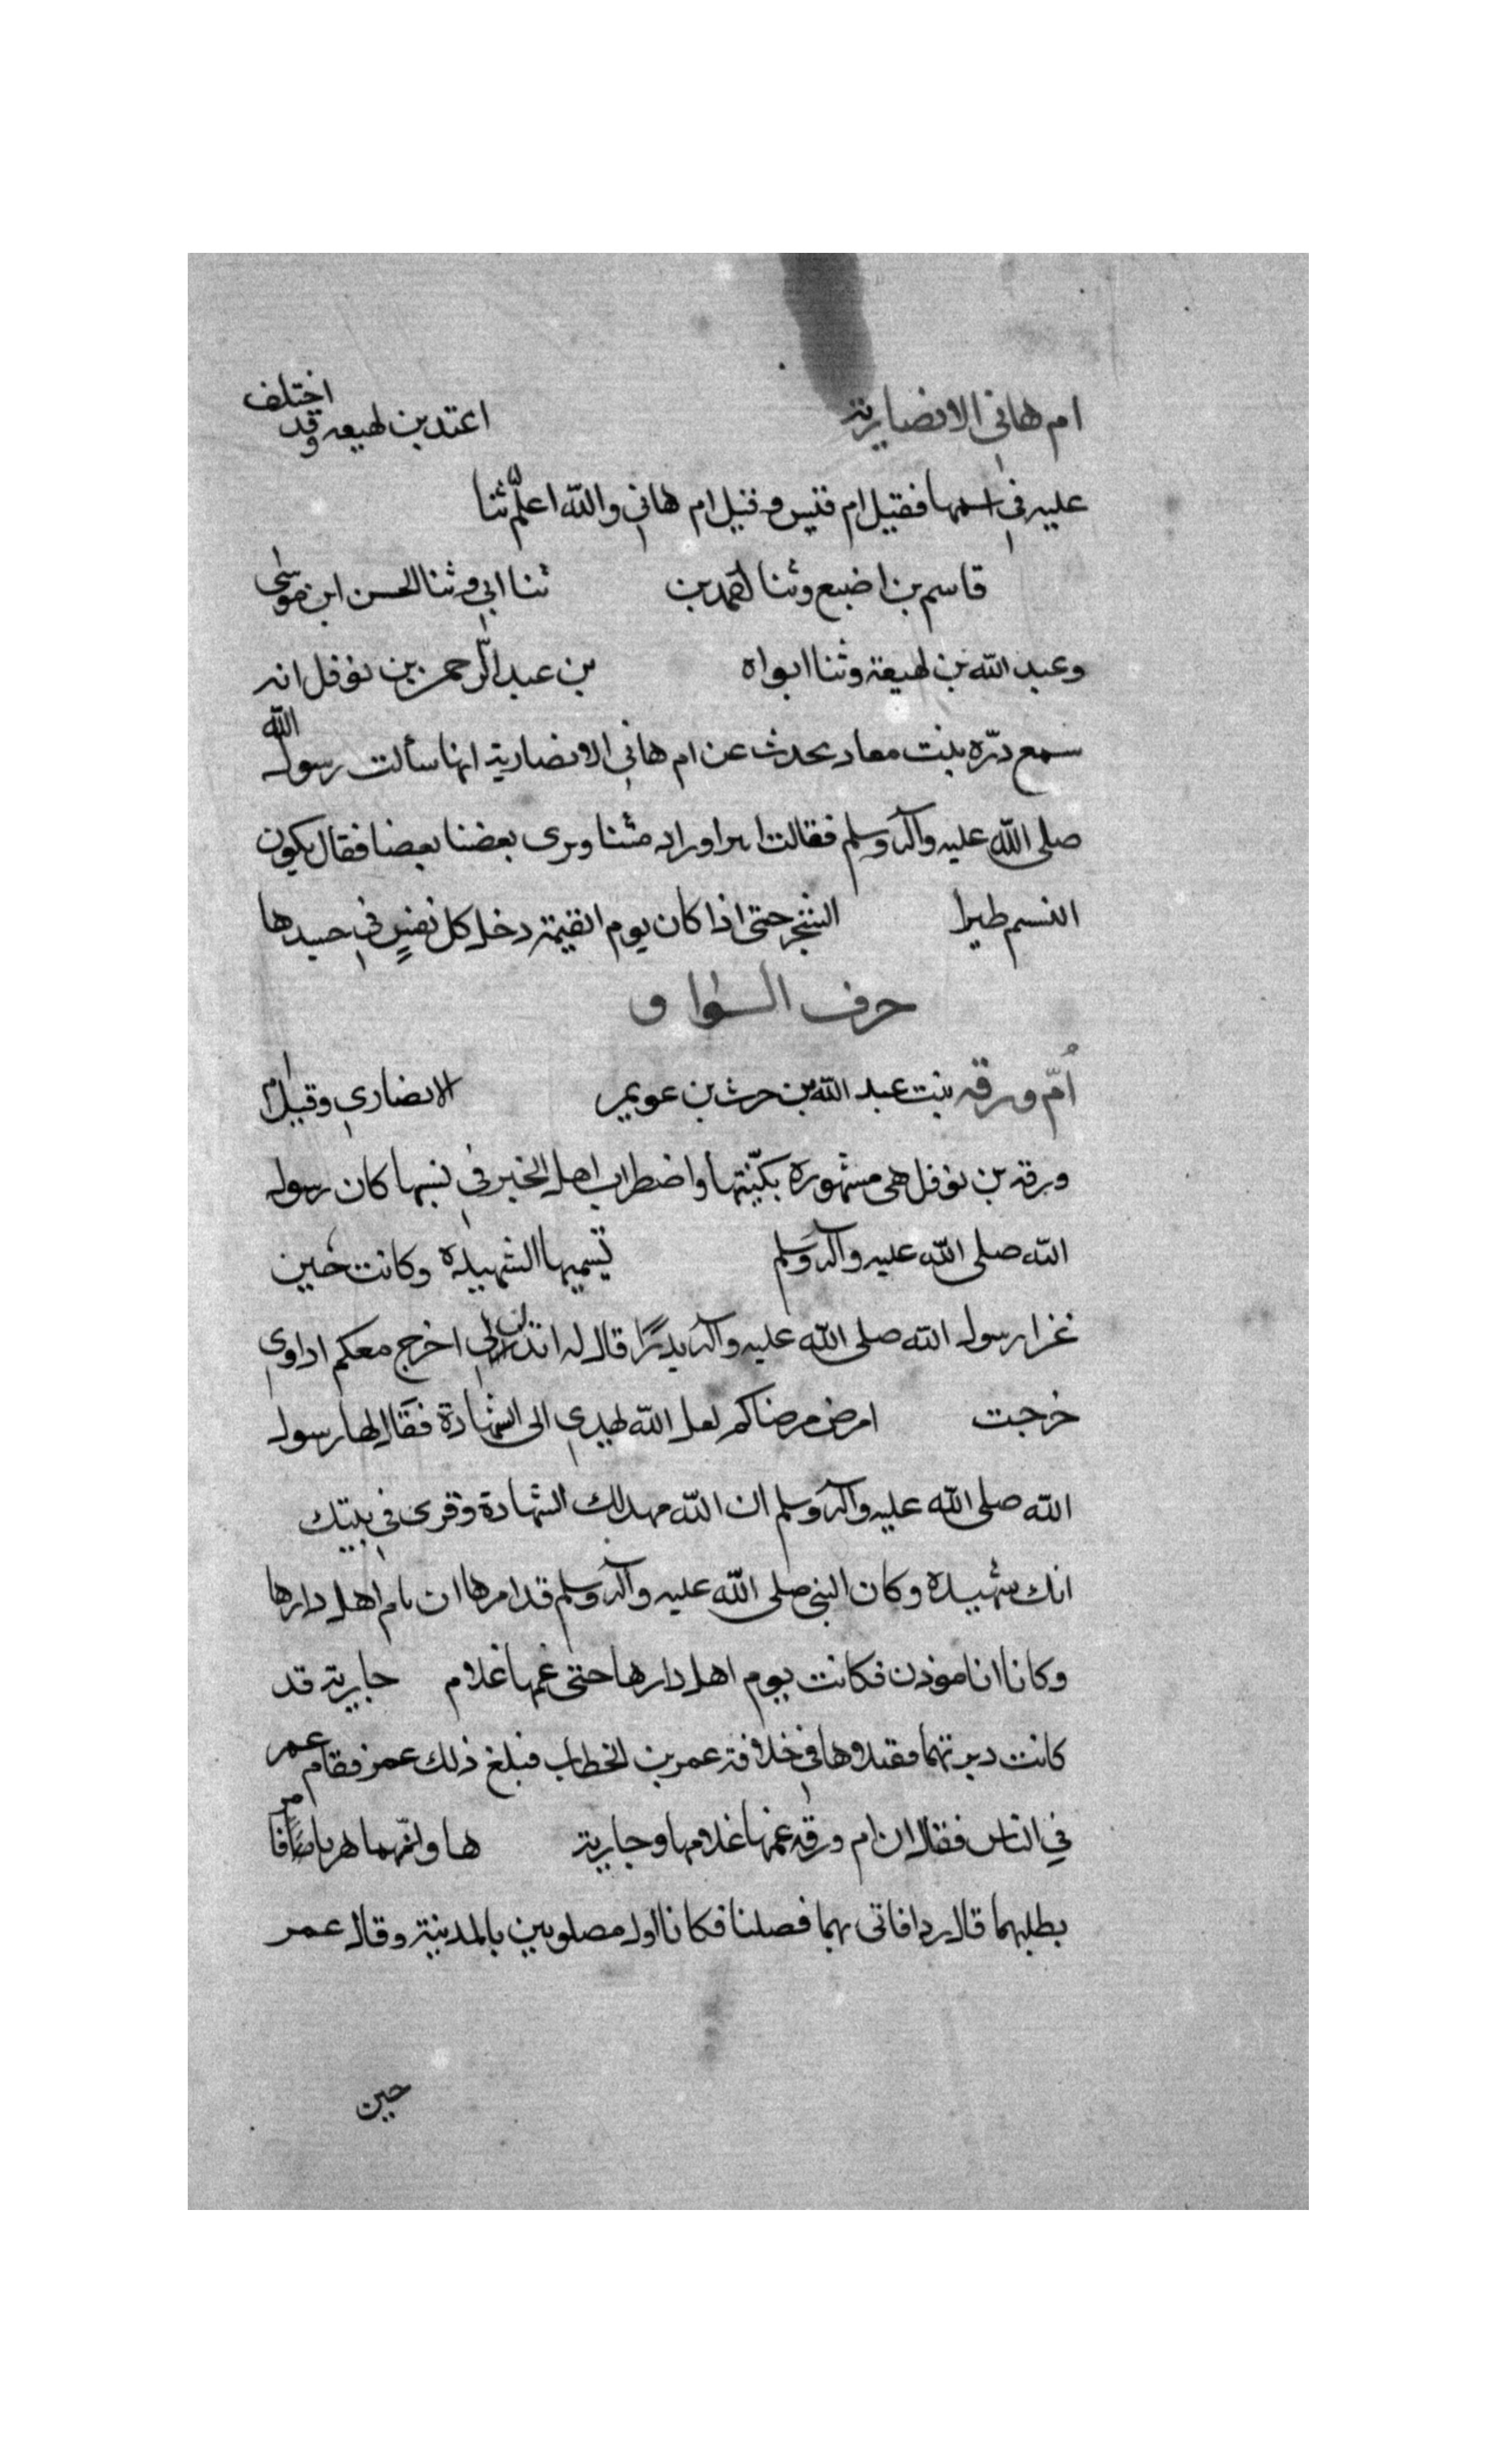 ام هاني الانصارية اعتد بن لهيعه وقد اختلف
عليه في اسمها فقيل ام قيس وقيل ام هاني والله اعلم ثنا
قاسم بن اضبع وثنا احمد بن ثنا ابي وثنا الحسن ابن موسى
وعبد الله بن لهيعة وثنا ابواه بن عبد الرحمن بن نوفل انه
سمع درّه بنت معاد يحدث عن ام هاني الانصارية انها سألت رسول الله
صلى الله عليه وآله وسلم فقالت متنا ويرى بعضنا بعضا فقال يكون
النسم طيرا الشجر حتى اذا كان يوم القيمة دخل كل نفسٍ في جسدها
حرف الواو
اُمّ ورقه بنت عبد الله بن حرث بن عويمر الانصاري وقيل ام
ورقه بن نوفل هى مشهورة بكنّيتها واضطراب اهل الخبر في نسبها كان رسول
الله صلى الله عليه وآله وسلم تسميها الشهيدة وكانت حين
غزا رسول الله صلى الله عليه وآله بدرًا قال له اخرج معكم اداوي
خرجت امرض مرضاكم لعل الله يهدي الى الشهادة فقال لها رسول
الله صلى الله عليه وآله وسلم ان الله مهد لك الشهادة وقرى في بيتك
انك شهيدة وكان النبي صلى الله عليه وآله وسلم قد امرها ان تام اهل دارها
وكانا انا موذن فكانت يوم اهل دارها حتى غمها غلام جارية قد
كانت دبرتهما فقتلاوها في خلافة عمر بن الخطاب فبلغ ذلك عمر فقام عمر
في الناس فقال ان ام ورقه غمها غلامها وجارية ها وانّهما هربا فامر
بطلبهما قال فاتى بهما فصلبا فكانا اول مصلوبين بالمدينة وقال عمر
حين